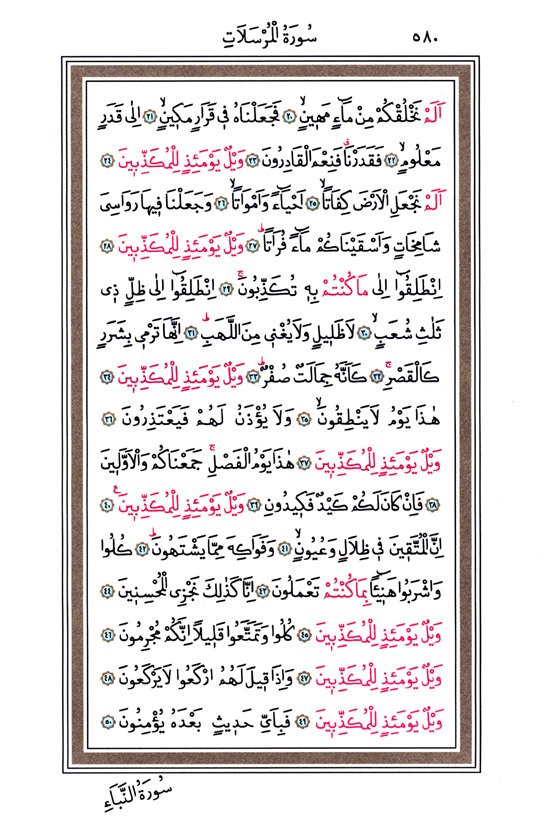 سُورَةُ الْمُرْسَلَاتِ ٥٨٠
اَلَمْ نَخْلُقْكُمْ مِنْ مَٓاءٍ مَهٖينٍۙ ﴿٢٠﴾ فَجَعَلْنَاهُ فٖى قَرَارٍ مَكٖينٍۙ ﴿٢١﴾ اِلٰى قَدَرٍ
مَعْلُومٍۙ ﴿٢٢﴾ فَقَدَرْنَاࣗ فَنِعْمَ الْقَادِرُونَ ﴿٢٣﴾ وَيْلٌ يَوْمَئِذٍ لِلْمُكَذِّبٖينَ ﴿٢٤﴾
اَلَمْ نَجْعَلِ الْاَرْضَ كِفَاتاًۙ ﴿٢٥﴾ اَحْيَٓاءً وَاَمْوَاتاًۙ ﴿٢٦﴾ وَجَعَلْنَا فٖيهَا رَوَاسِىَ
شَامِخَاتٍ وَاَسْقَيْنَاكُمْ مَٓاءً فُرَاتاًؕ ﴿٢٧﴾ وَيْلٌ يَوْمَئِذٍ لِلْمُكَذِّبٖينَ ﴿٢٨﴾
اِنْطَلِقُٓوا اِلٰى مَا كُنْتُمْ بِهٖ تُكَذِّبُونَۚ ﴿٢٩﴾ اِنْطَلِقُٓوا اِلٰى ظِلٍّ ذٖى
ثَلٰثِ شُعَبٍۙ ﴿٣٠﴾ لَا ظَلٖيلٍ وَلَا يُغْنٖى مِنَ اللَّهَبِؕ ﴿٣١﴾ اِنَّهَا تَرْمٖى بِشَرَرٍ
كَالْقَصْرِۚ ﴿٣٢﴾ كَاَنَّهُ جِمَالَتٌ صُفْرٌؕ ﴿٣٣﴾ وَيْلٌ يَوْمَئِذٍ لِلْمُكَذِّبٖينَ ﴿٣٤﴾
هٰذَا يَوْمُ لَا يَنْطِقُونَۙ ﴿٣٥﴾ وَلَا يُؤْذَنُ لَهُمْ فَيَعْتَذِرُونَ ﴿٣٦﴾
وَيْلٌ يَوْمَئِذٍ لِلْمُكَذِّبٖينَ ﴿٣٧﴾ هٰذَا يَوْمُ الْفَصْلِۚ جَمَعْنَاكُمْ وَالْاَوَّلٖينَ
﴿٣٨﴾ فَاِنْ كَانَ لَكُمْ كَيْدٌ فَكٖيدُونِ ﴿٣٩﴾ وَيْلٌ يَوْمَئِذٍ لِلْمُكَذِّبٖينَࣖ ﴿٤٠﴾
اِنَّ الْمُتَّقٖينَ فٖى ظِلَالٍ وَعُيُونٍۙ ﴿٤١﴾ وَفَوَاكِهَ مِمَّا يَشْتَهُونَؕ ﴿٤٢﴾ كُلُوا
وَاشْرَبُوا هَنٖٓيـٔاً بِمَا كُنْتُمْ تَعْمَلُونَ ﴿٤٣﴾ اِنَّا كَذٰلِكَ نَجْزِى الْمُحْسِنٖينَ ﴿٤٤﴾
وَيْلٌ يَوْمَئِذٍ لِلْمُكَذِّبٖينَ ﴿٤٥﴾ كُلُوا وَتَمَتَّعُوا قَلٖيلاً اِنَّكُمْ مُجْرِمُونَ ﴿٤٦﴾
وَيْلٌ يَوْمَئِذٍ لِلْمُكَذِّبٖينَ ﴿٤٧﴾ وَاِذَا قٖيلَ لَهُمُ ارْكَعُوا لَا يَرْكَعُونَ ﴿٤٨﴾
وَيْلٌ يَوْمَئِذٍ لِلْمُكَذِّبٖينَ ﴿٤٩﴾ فَبِاَىِّ حَدٖيثٍ بَعْدَهُ يُؤْمِنُونَ ﴿٥٠﴾
سُورَةُ النَّبَاءِ